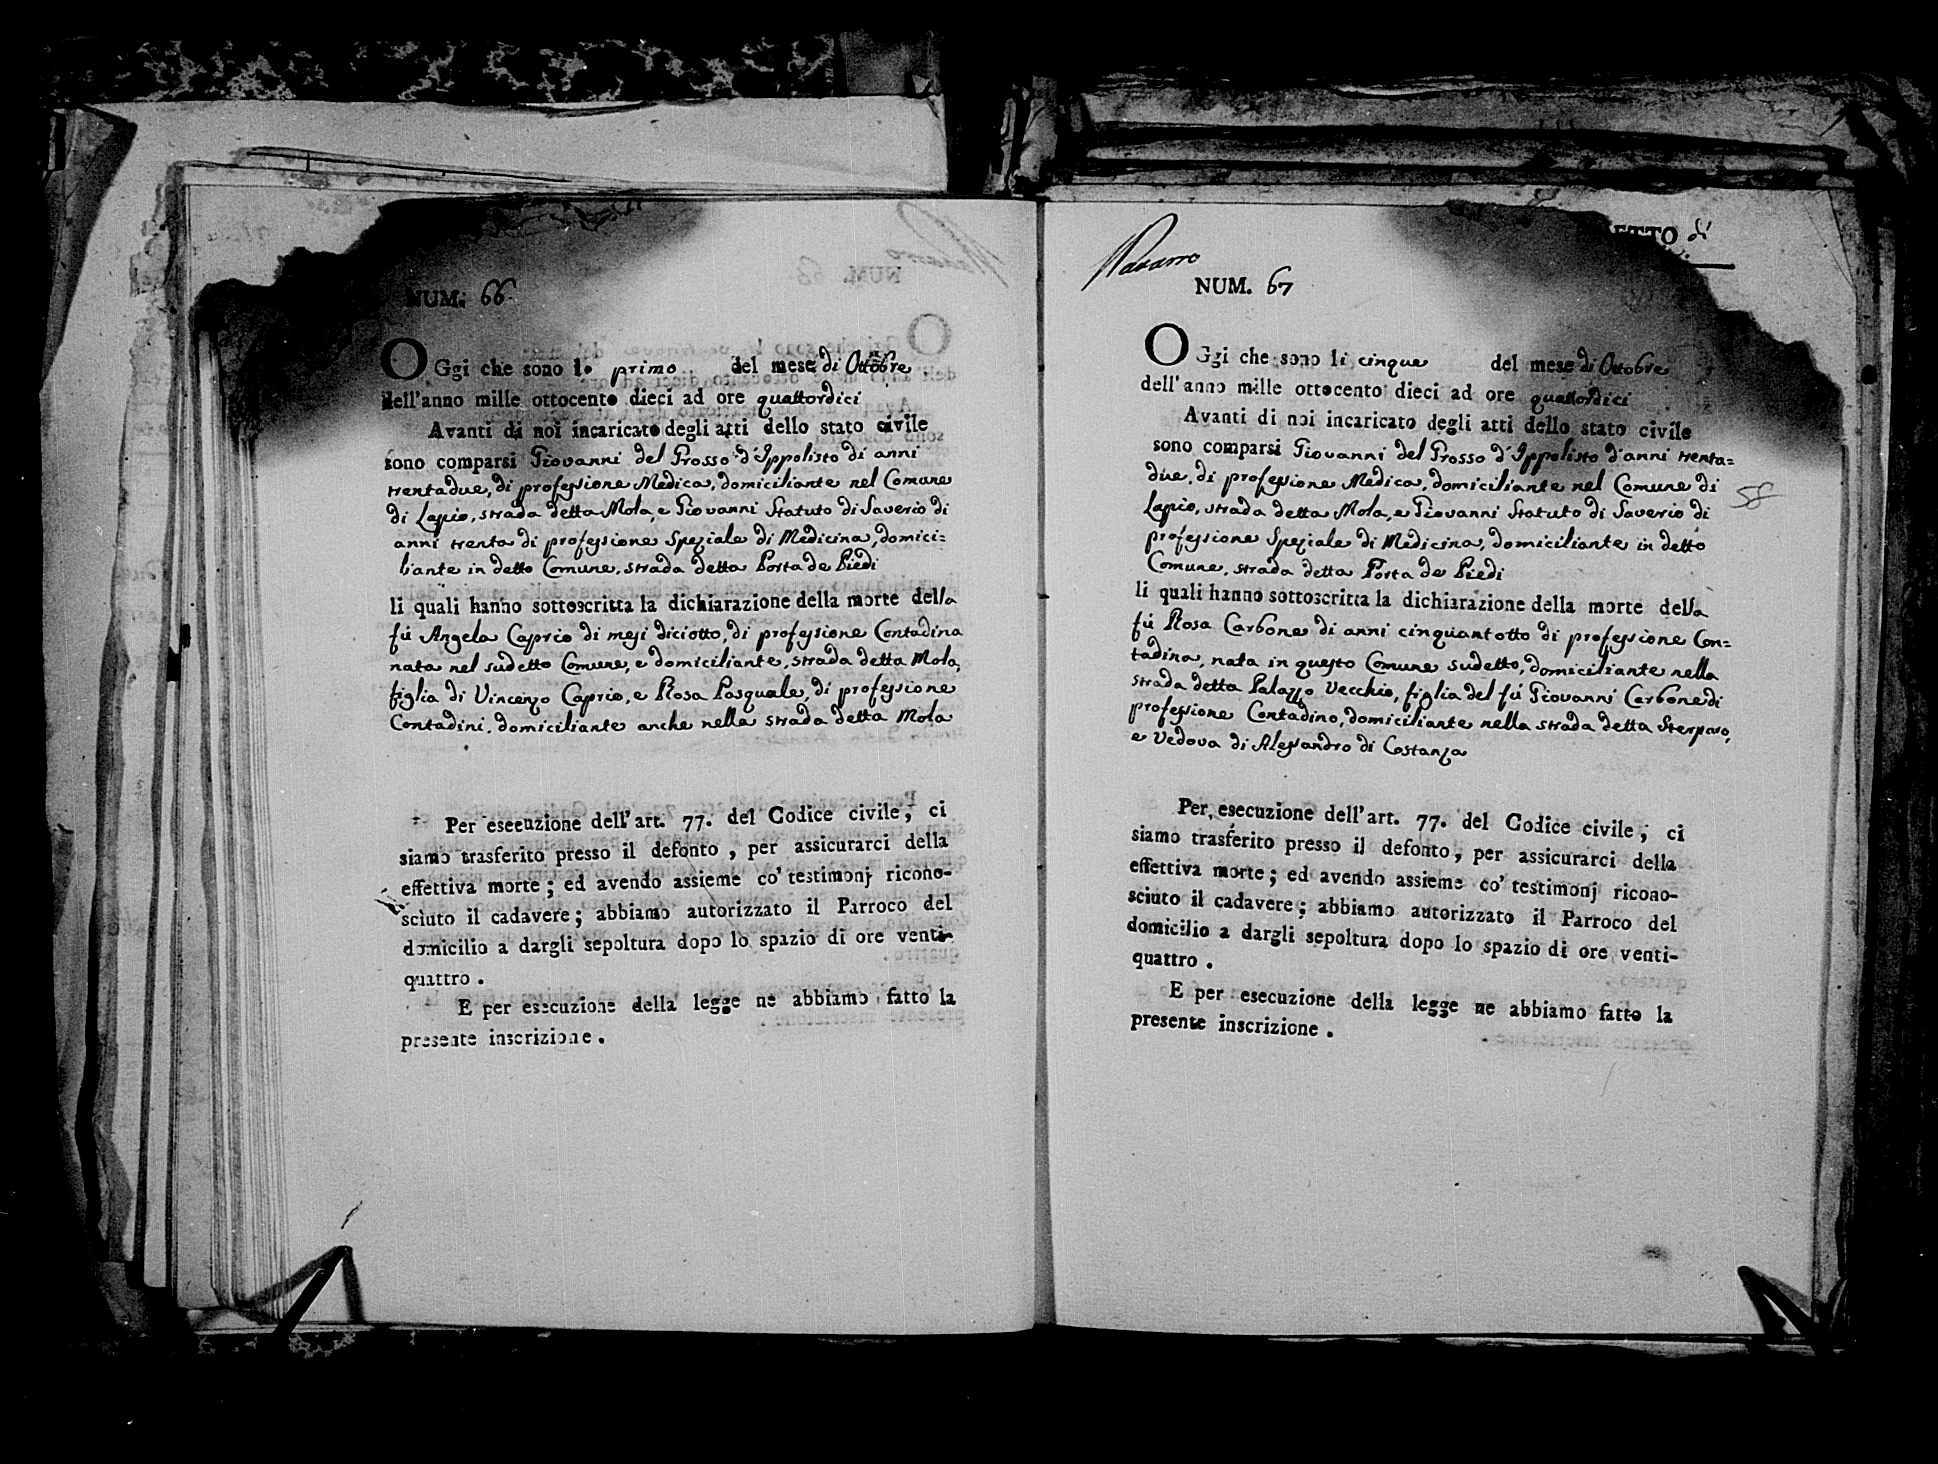 NUM. 66
OGgi che sono lo primo del mese di Ottobre
dell'anno mille ottocento dieci ad ore quattordici
Avanti di noi incaricato degli atti dello stato civile
sono comparsi Giovanni del Grosso d'Ippolisto di anni
trentadue, di professione Medica, domiciliante nel Comune
di Lapio, strada detta Mola, e Giovanni Statuto di Saverio di
anni trenta di professione Speziale di Medicina, domici=
liante in detto Comune, strada detta Porta de Piedi
li quali hanno sottoscritta la dichiarazione della morte della
fù Angela Caprio di mesi diciotto, di professione Contadina
nata nel sudetto Comune, e domiciliante, strada detta Mola,
figlia di Vincenzo Caprio, e Rosa Pasquale, di professione
Contadini, domiciliante anche nella strada detta Mola
Per esecuzione dell'art. 77. del Codice civile, ci
siamo trasferito presso il defonto, per assicurarci della
effettiva morte; ed avendo assieme co' testimonj ricono-
sciuto il cadavere; abbiamo autorizzato il Parroco del
domicilio a dargli sepoltura dopo lo spazio di ore venti-
quattro.
E per esecuzione della legge ne abbiamo fatto la
presente inscrizione.
ETTO di
Navarro
NUM. 67
OGgi che sono li cinque del mese di Ottobre
dell'anno mille ottocento dieci ad ore quattordici
Avanti di noi incaricato degli atti dello stato civile
sono comparsi Giovanni del Grosso d'Ippolisto d'anni trenta=
due, di professione Medica, domiciliante nel Comune di
58
Lapio, strada detta Mola, e Giovanni Statuto di Saverio di
professione Speziale di Medicina, domiciliante in detto
Comune, strada detta Porta de Piedi
li quali hanno sottoscritta la dichiarazione della morte della
fù Rosa Carbone di anni cinquantotto di professione Con=
tadina, nata in questo Comune sudetto, domiciliante nella
strada detta Palazzo Vecchio, figlia del fù Giovanni Carbone di
professione Contadino, domiciliante nella strada detta Sterparo,
e Vedova di Alessandro di Costanza
Per esecuzione dell'art. 77. del Codice civile, ci
siamo trasferito presso il defonto, per assicurarci della
effettiva morte; ed avendo assieme co' testimonj ricono-
sciuto il cadavere; abbiamo autorizzato il Parroco del
domicilio a dargli sepoltura dopo lo spazio di ore venti-
quattro.
E per esecuzione della legge ne abbiamo fatto la
presente inscrizione.